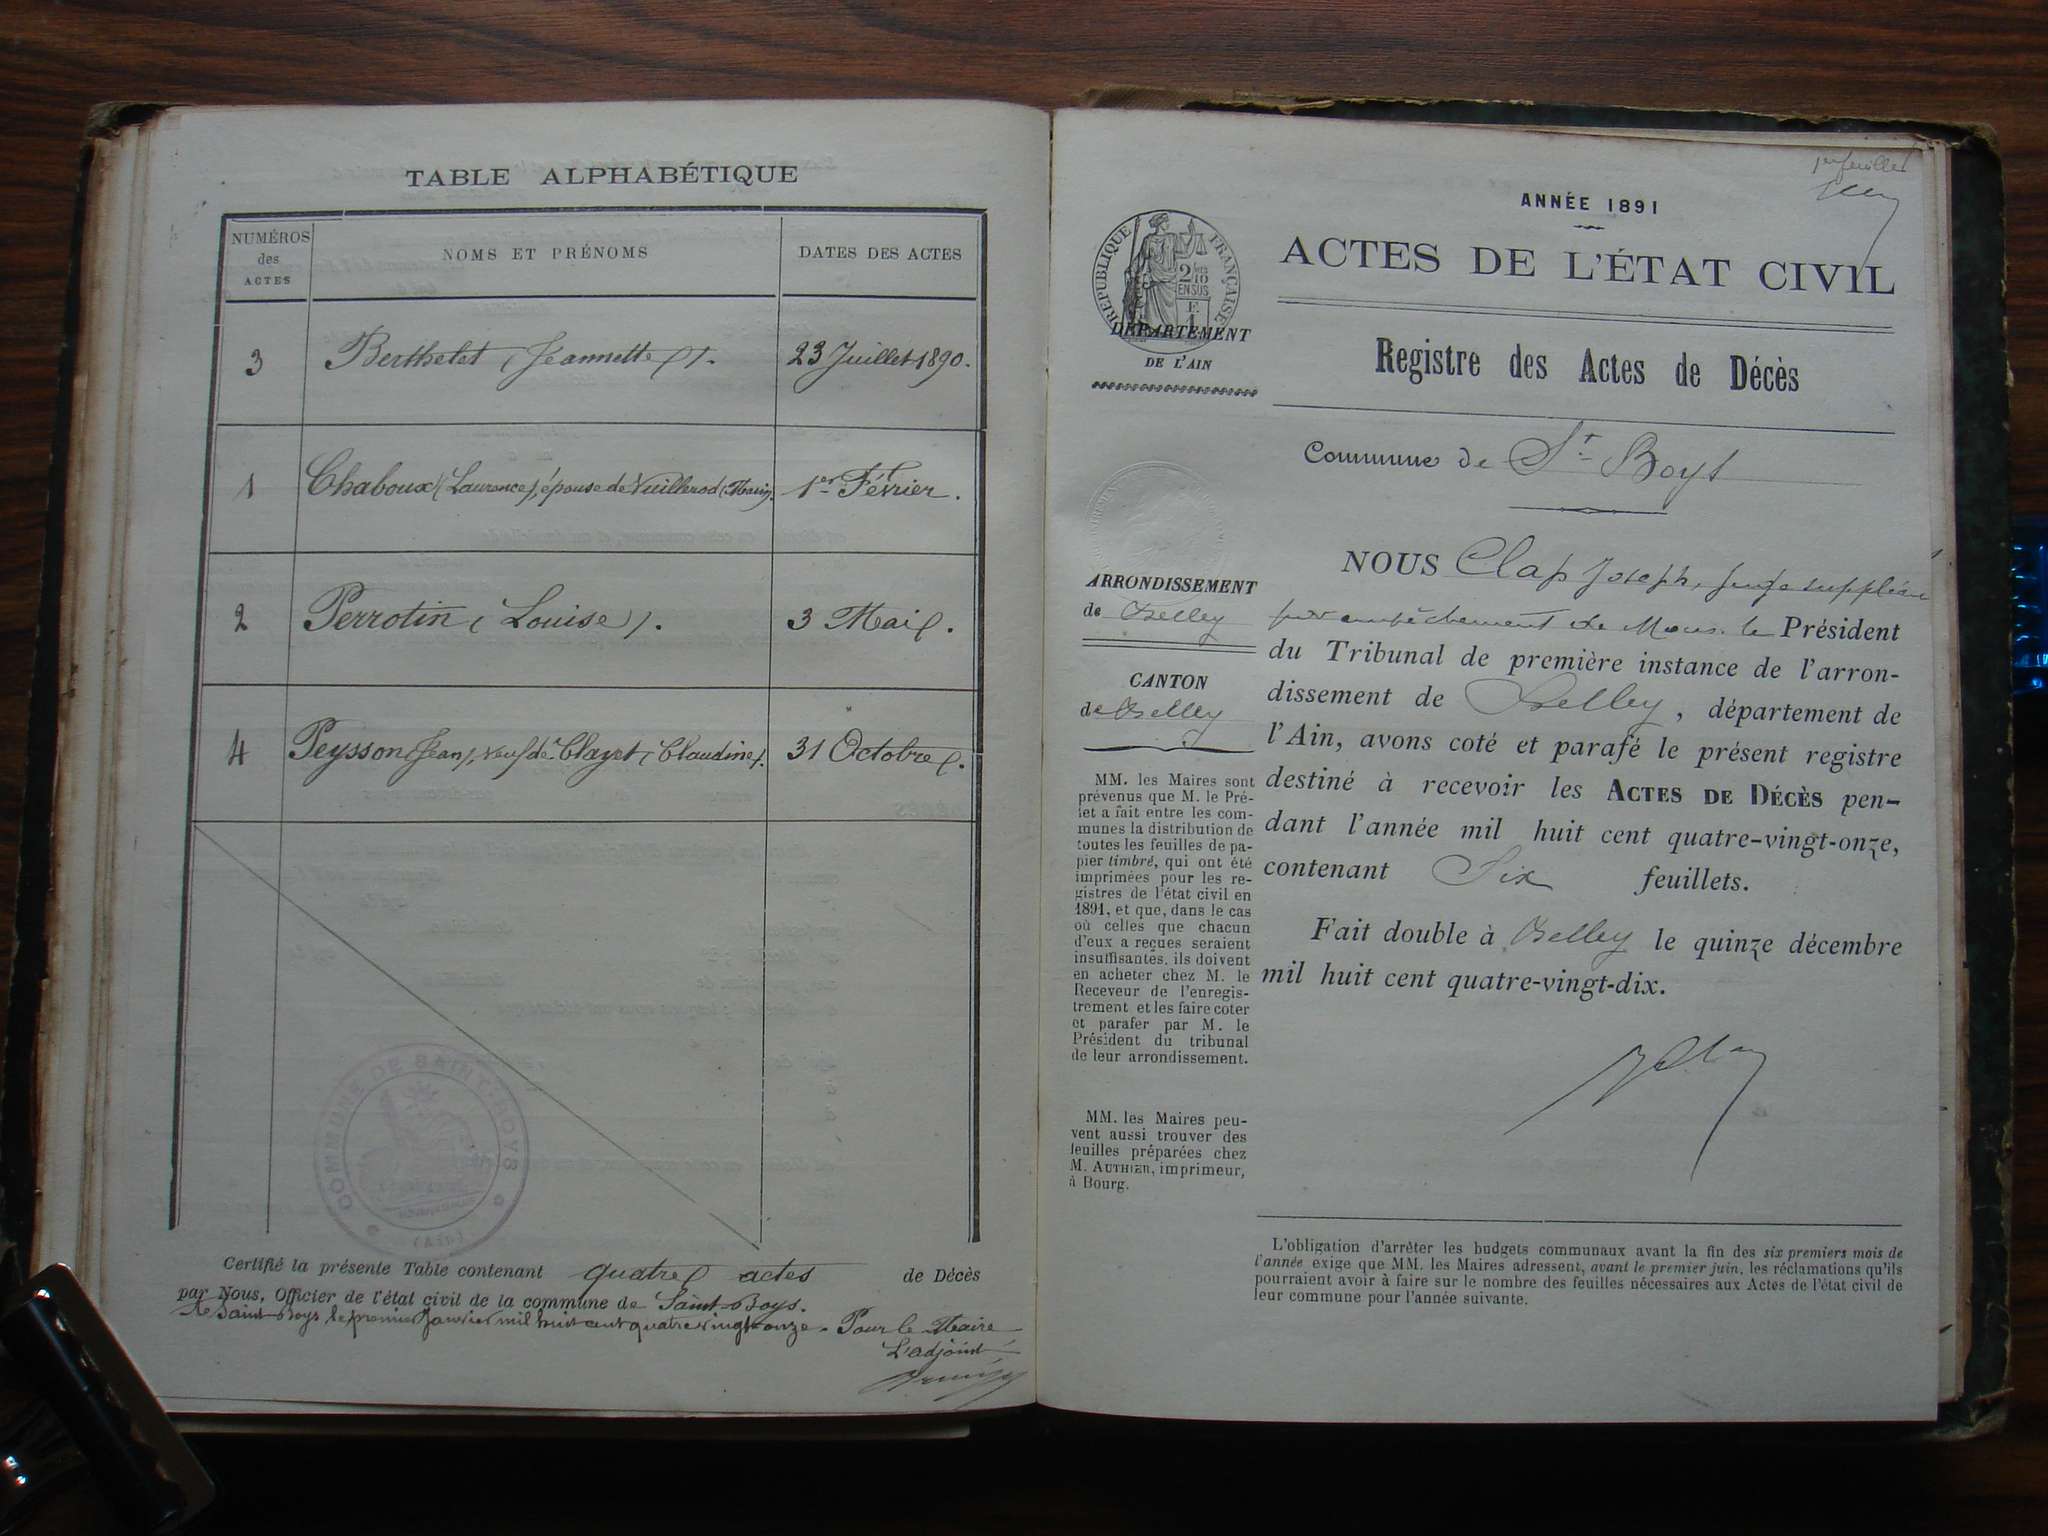 TABLE ALPHABÉTIQUE
NUMÉROS des ACTES NOMS ET PRÉNOMS DATES DES ACTES
3 Berthelet (Jeannette). 23 Juillet 1890.
1 Chaboux (Laurence), épouse de Vuillerod (Marin). 1er Février.
2 Perrotin (Louise). 3 Mai.
4 Peysson (Jean), veuf de Clayet (Claudine). 31 Octobre.
COMMUNE DE SAINT-BOYS
(Ain)
Certifié la présente Table contenant quatre actes de Décès
par Nous, Officier de l'état civil de la commune de Saint-Boys.
A Saint-Boys le premier Janvier mil huit cent quatre vingt onze. Pour le Maire
L'adjoint
1er feuillet
ANNÉE 1891
ACTES DE L'ÉTAT CIVIL
RÉPUBLIQUE FRANÇAISE
2/10 EN SUS
DÉPARTEMENT
DE L'AIN
Registre des Actes de Décès
Commune de St Boys
ARRONDISSEMENT
de Belley
CANTON
de Belley
MM. les Maires sont
prévenus que M. le Pré-
fet a fait entre les com-
munes la distribution de
toutes les feuilles de pa-
pier timbré, qui ont été
imprimées pour les re-
gistres de l'état civil en
1891, et que, dans le cas
où celles que chacun
d'eux a reçues seraient
insuffisantes, ils doivent
en acheter chez M. le
Receveur de l'enregis-
trement et les faire coter
et parafer par M. le
Président du tribunal
de leur arrondissement.
MM. les Maires peu-
vent aussi trouver des
feuilles préparées chez
M. AUTHIER, imprimeur,
à Bourg.
NOUS Clap Joseph, Juge suppléant
par empêchement de Mons. le Président
du Tribunal de première instance de l'arron-
dissement de Belley, département de
l'Ain, avons coté et parafé le présent registre
destiné à recevoir les ACTES DE DÉCÈS pen-
dant l'année mil huit cent quatre-vingt-onze,
contenant Six feuillets.
Fait double à Belley le quinze décembre
mil huit cent quatre-vingt-dix.
L'obligation d'arrêter les budgets communaux avant la fin des six premiers mois de
l'année exige que MM. les Maires adressent, avant le premier juin, les réclamations qu'ils
pourraient avoir à faire sur le nombre des feuilles nécessaires aux Actes de l'état civil de
leur commune pour l'année suivante.